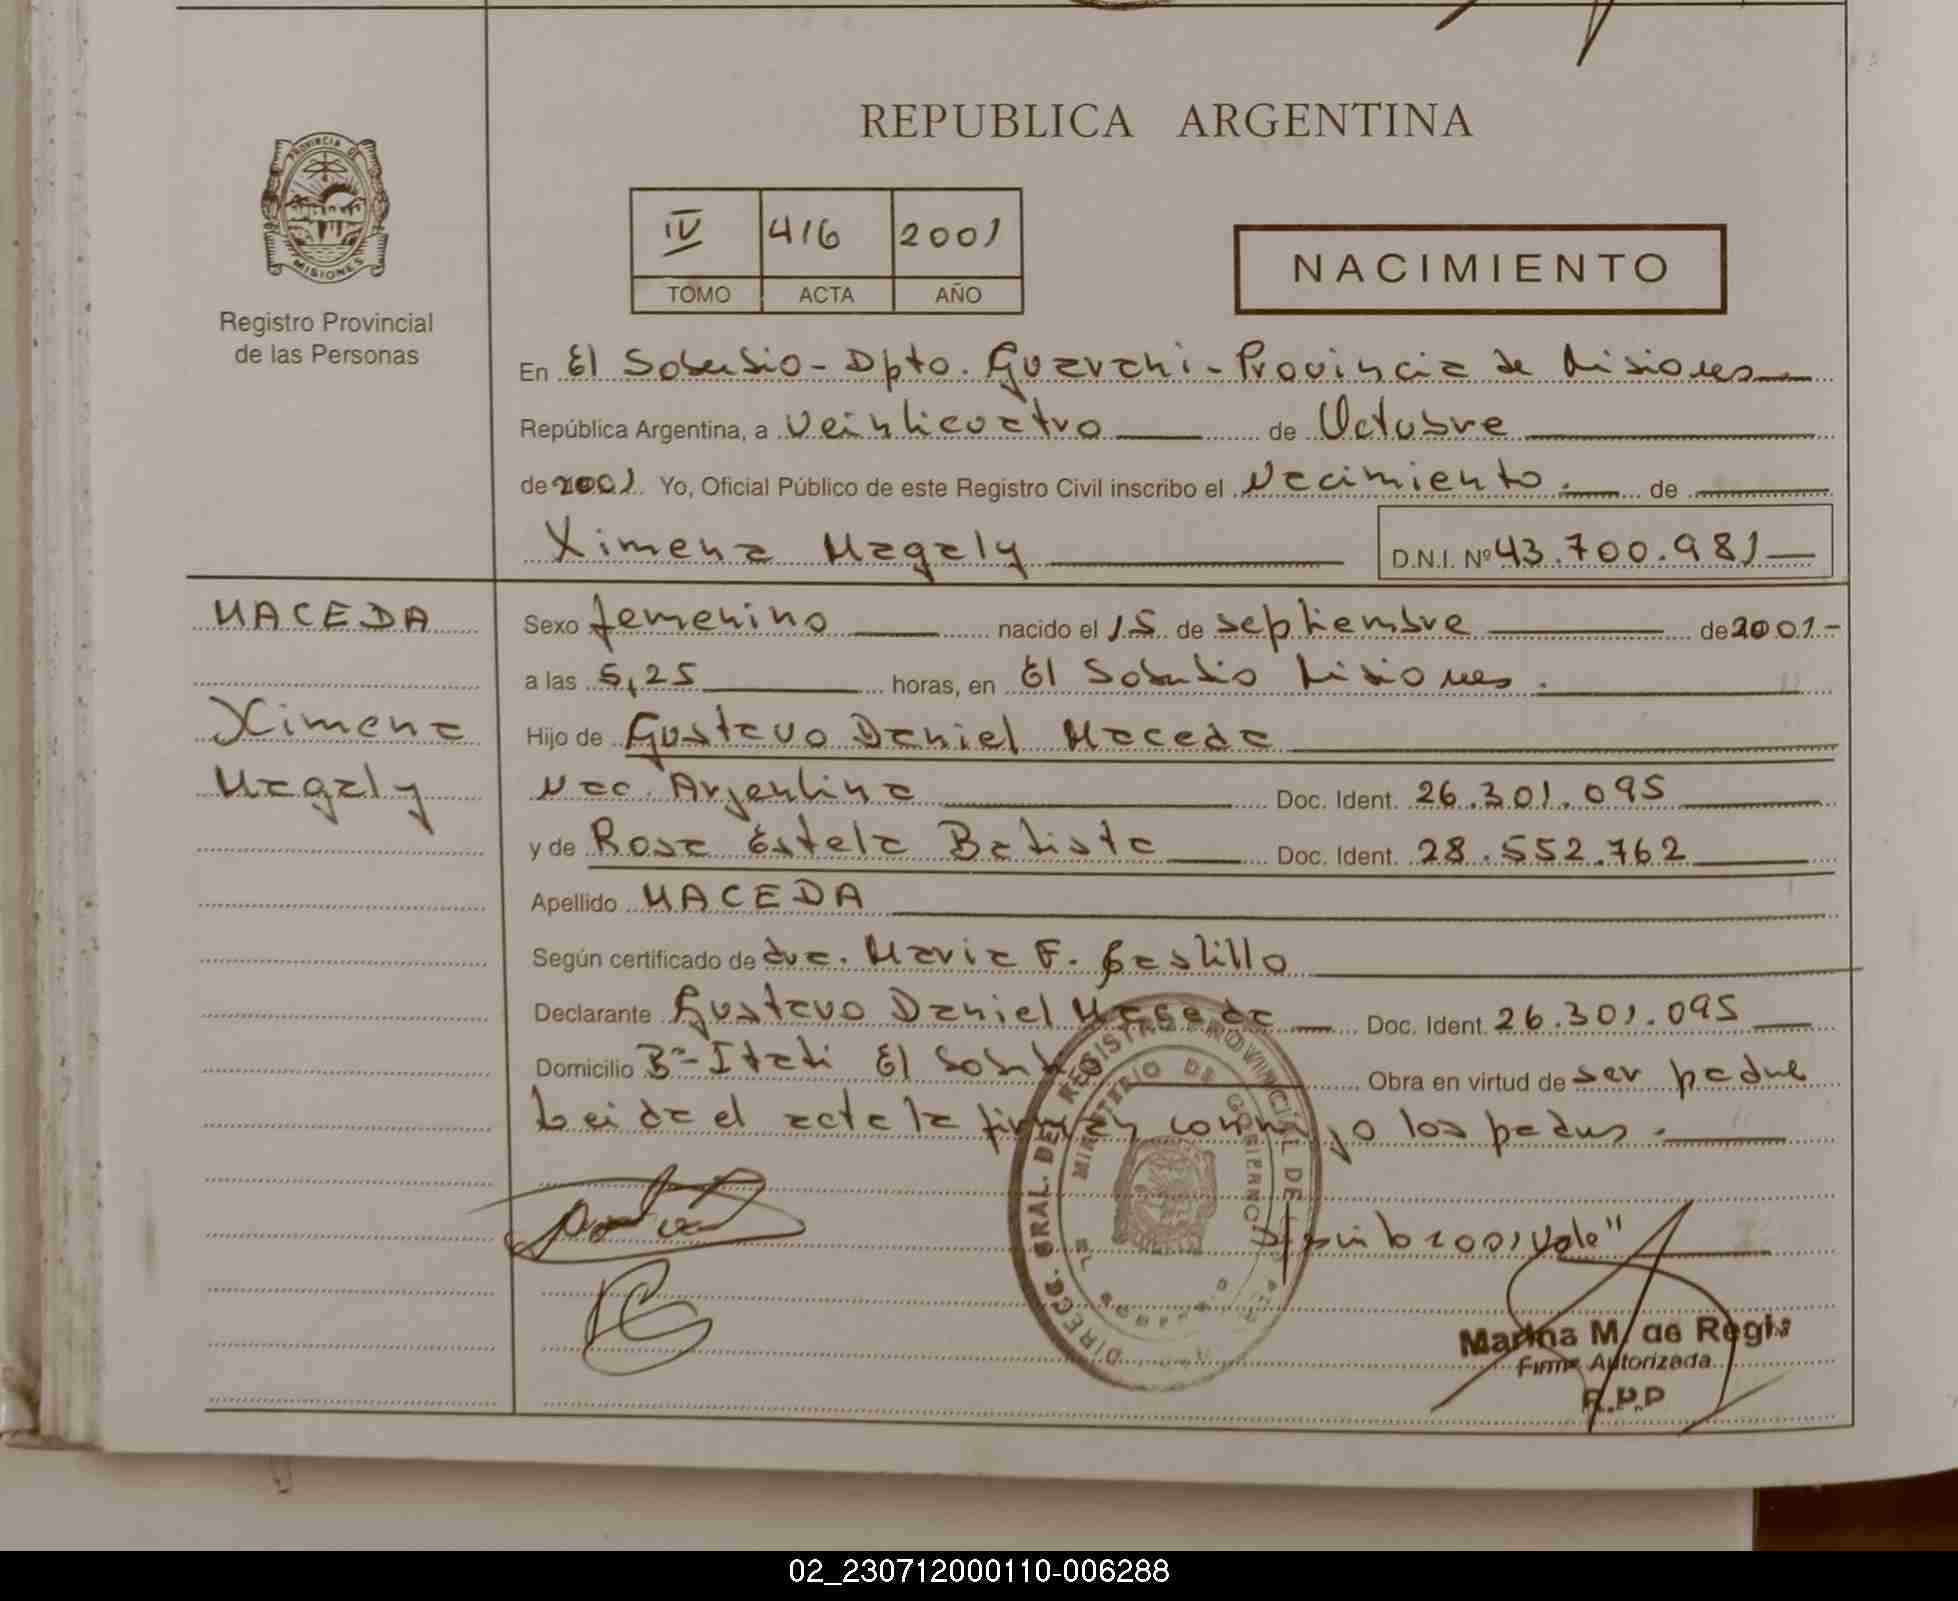 REPUBLICA ARGENTINA
PROVINCIA DE
MISIONES
Registro Provincial
de las Personas
IV 416 2001
TOMO ACTA AÑO
NACIMIENTO
En El Soberbio - Dpto. Guarani - Provincia de Misiones
República Argentina, a veinticuatro de Octubre
de 2001 Yo, Oficial Público de este Registro Civil inscribo el Nacimiento. de
Ximena Magaly D.N.I. Nº 43.700.981
MACEDA
Ximena
Magaly
Sexo femenino nacido el 15 de septiembre de 2001-
a las 5,25 horas, en El Soberbio Misiones.
Hijo de Gustavo Daniel Maceda
Nac. Argentina Doc. Ident. 26.301.095
y de Rosa Estela Batista Doc. Ident. 28.552.762
Apellido MACEDA
Según certificado de dra. Maria F. Castillo
Declarante Gustavo Daniel Maceda Doc. Ident. 26.301.095
Domicilio Bº Itati El Soberbio Obra en virtud de ser padre
Leida el acta la firman conmigo los padres.
DIRECC. GRAL. DEL REGISTRO PROVINCIAL DE
MINISTERIO DE GOBIERNO
2001, Vale"
Marina M. de Regis
Firma Autorizada
R.P.P
02_230712000110-006288